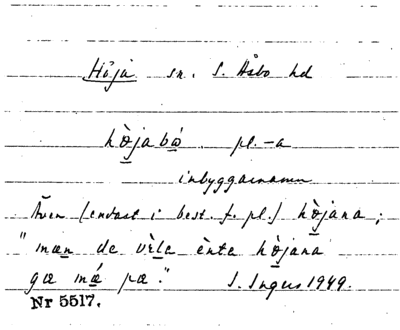 Höjå sn. S. Åsbo hd
hòjabó pl. -a
inbyggarnamn
Även (endast i best. f. pl.) hòjana;
"mæn de vèle ènte hòjana
gæ mǽ pæ." I. Ingers 1949.
Nr 5517.